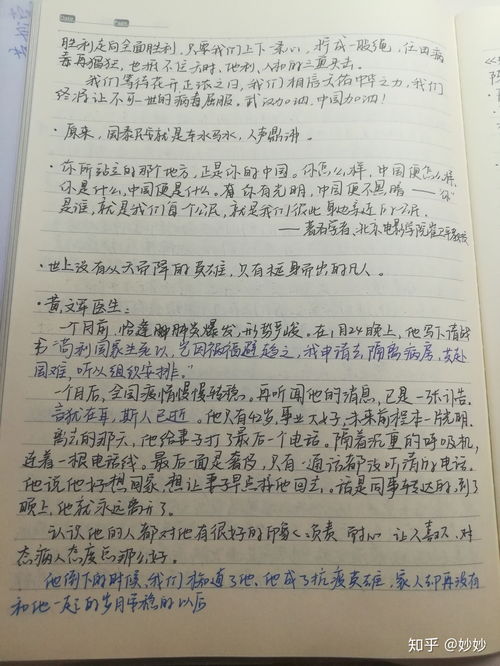 Date
Page
胜利走向全面胜利，只要我们上下一条心，拧成一股绳，任由病
毒再猖狂，也抵不过天时、地利、人和的三重夹击。
我们等待花开正浓之日，我们相信天佑中华之力，我们
终将让不可一世的病毒屈服。武汉加油，中国加油！
·原来，国泰民安就是车水马水，人声鼎沸。
·你所站立的那个地方，正是你的中国。你怎么样，中国便怎么样，
你是什么，中国便是什么。有你有光明，中国便不黑暗——“你”
是谁，就是我们每个公民，就是我们彼此身边亲近的方厅。
——著名学者、北京电影学院崔卫平教授
·世上没有从天而降的英雄，只有挺身而出的凡人。
·黄文军医生：
一个月前，恰逢肺炎爆发，形势严峻。在1月24晚上，他写下请战
书“苟利国家生死以，岂因祸福避趋之，我申请去隔离病房，共赴
国难，听从组织安排。”
一个月后，全国疫情慢慢转稳。再听闻他的消息，已是一张讣告。
言犹在耳，斯人已逝。他只有42岁，事业大好，未来前程本一片光明。
离去的那天，他给妻子打了最后一个电话。隔着沉重的呼吸机，
连着一根电话线。最后一面是奢侈，只有一通话都没听清的电话。
他说他好想回家，想让妻早点接他回去。话是同事转达的，到了
晚上，他就永远离开了。
认识他的人都对他有很好的印象：负责 耐心 让人喜欢，对
态病人态度总那么好。
他倒下的时候，我们才知道了他，他成了抗疫英雄，家人却再没有
和他一起的岁月安稳的以后
知乎 @妙妙